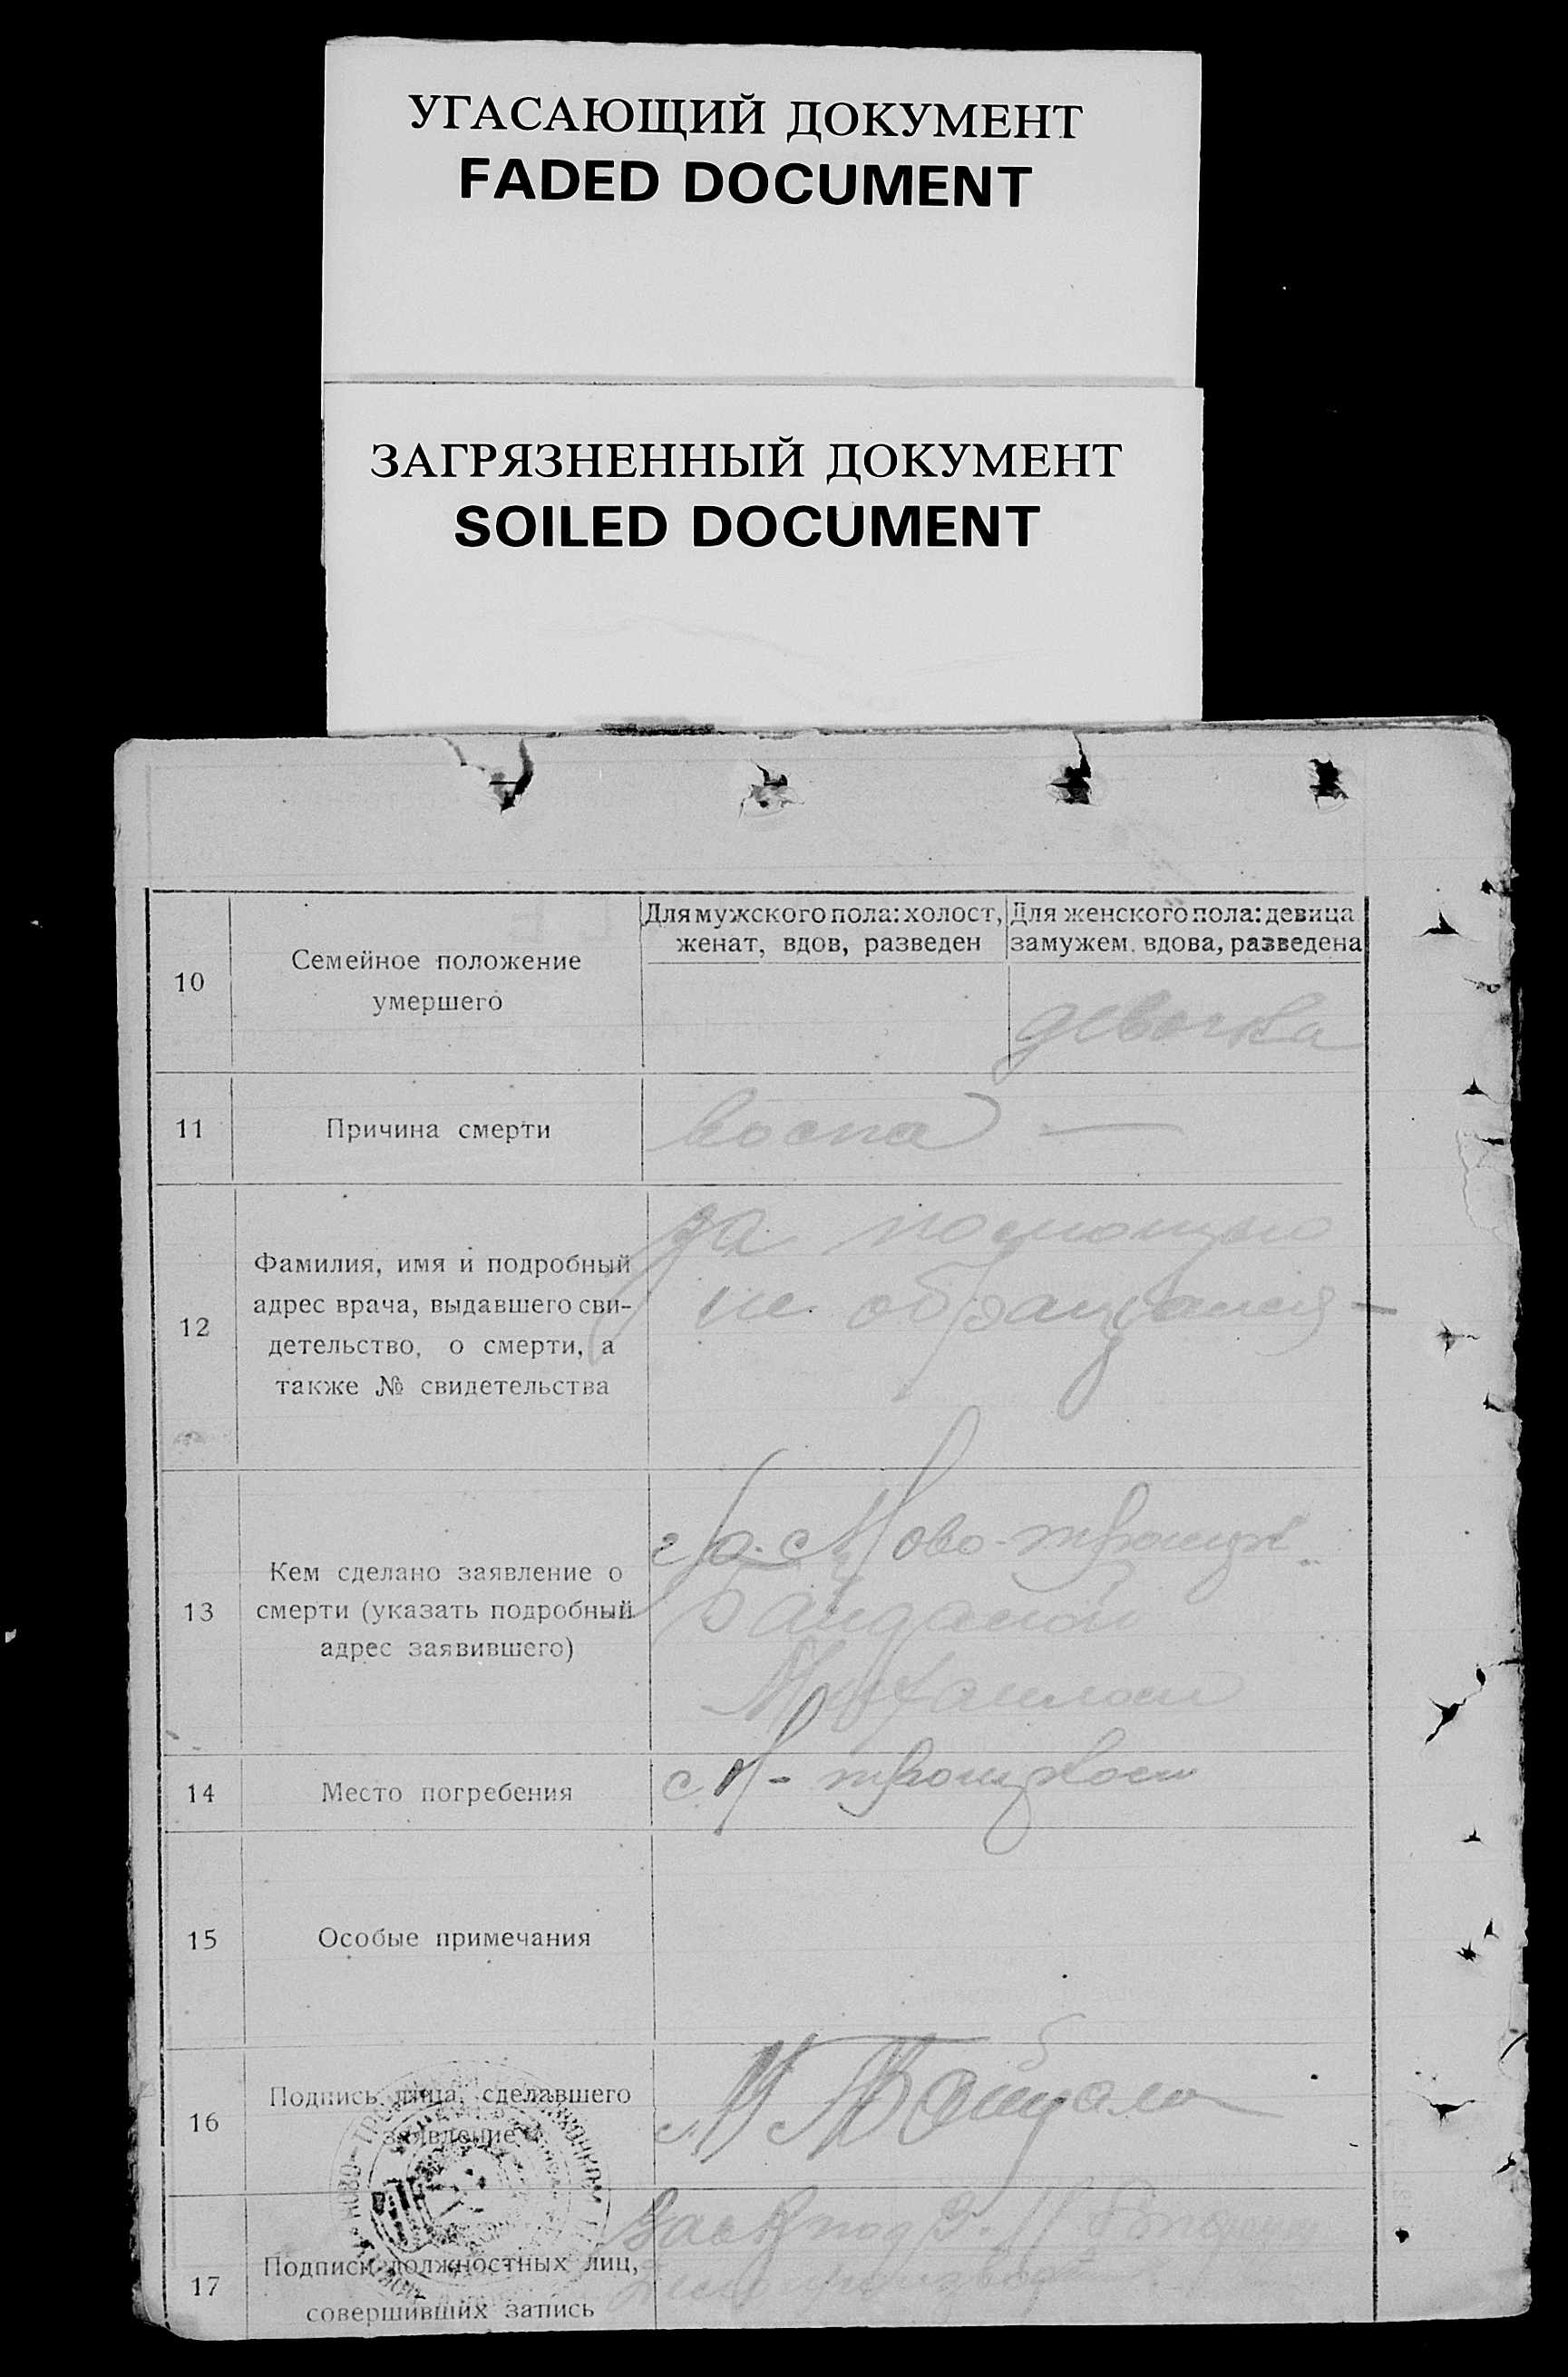 УГАСАЮЩИЙ ДОКУМЕНТ
FADED DOCUMENT
ЗАГРЯЗНЕННЫЙ ДОКУМЕНТ
SOILED DOCUMENT
10
Семейное положение
умершего
Для мужского пола: холост,
женат, вдов, разведен
Для женского пола: девица
замужем. вдова, разведена
девочка
11
Причина смерти
воспа —
12
Фамилия, имя и подробный
адрес врача, выдавшего сви-
детельство, о смерти, а
также № свидетельства
за помощью
не обращался -
13
Кем сделано заявление о
смерти (указать подробный
адрес заявившего)
гр. с. Ново-троицк.
14
Место погребения
с. Н-троицком
15
Особые примечания
16
Подпись лица, сделавшего
заявление
17
Подписи должностных лиц,
совершивших запись
Зав.